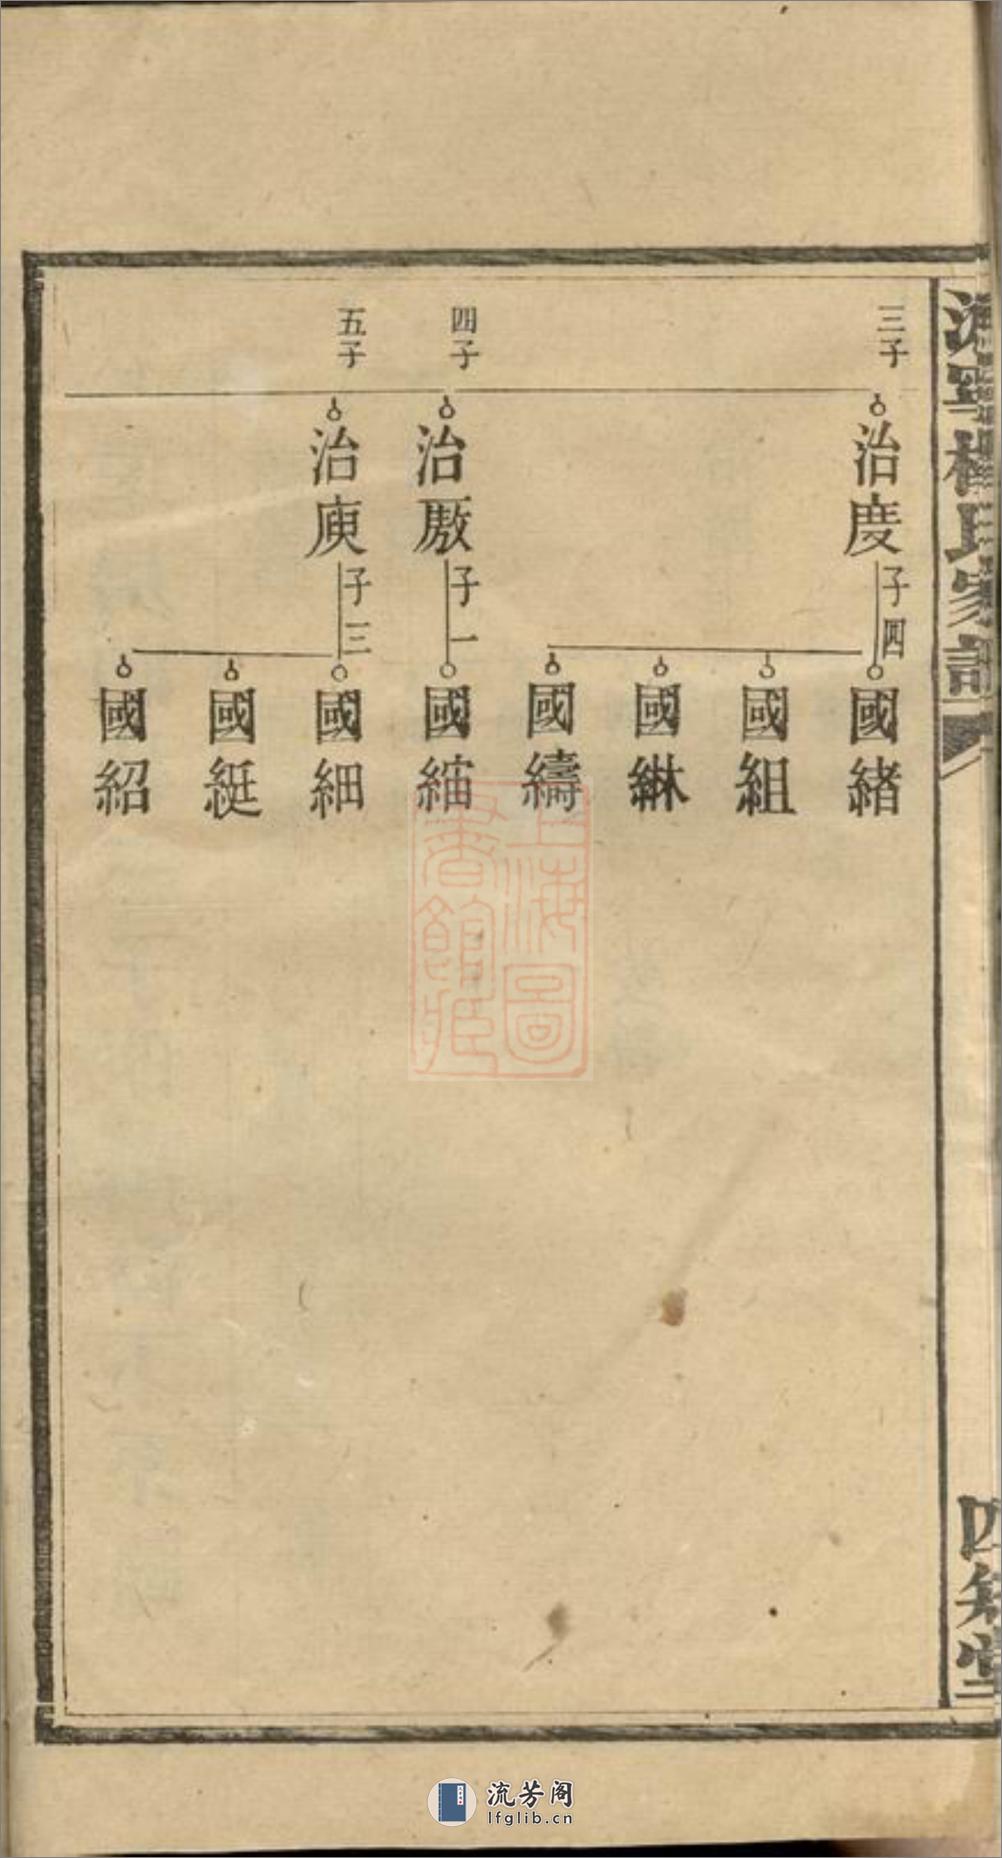 三子
治度
子四
國緒
國組
國綝
國燽
四子
治厫
子一
國紬
五子
治庾
子三
國細
國綎
國紹
氏家
四知堂
上海圖
書館藏
流芳阁
lfglib.cn